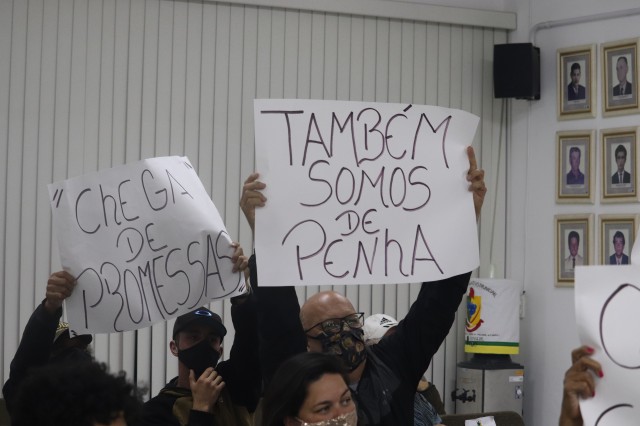 "CHEGA
DE
PROMESSAS"
TAMBÉM
SOMOS
DE
PENHA